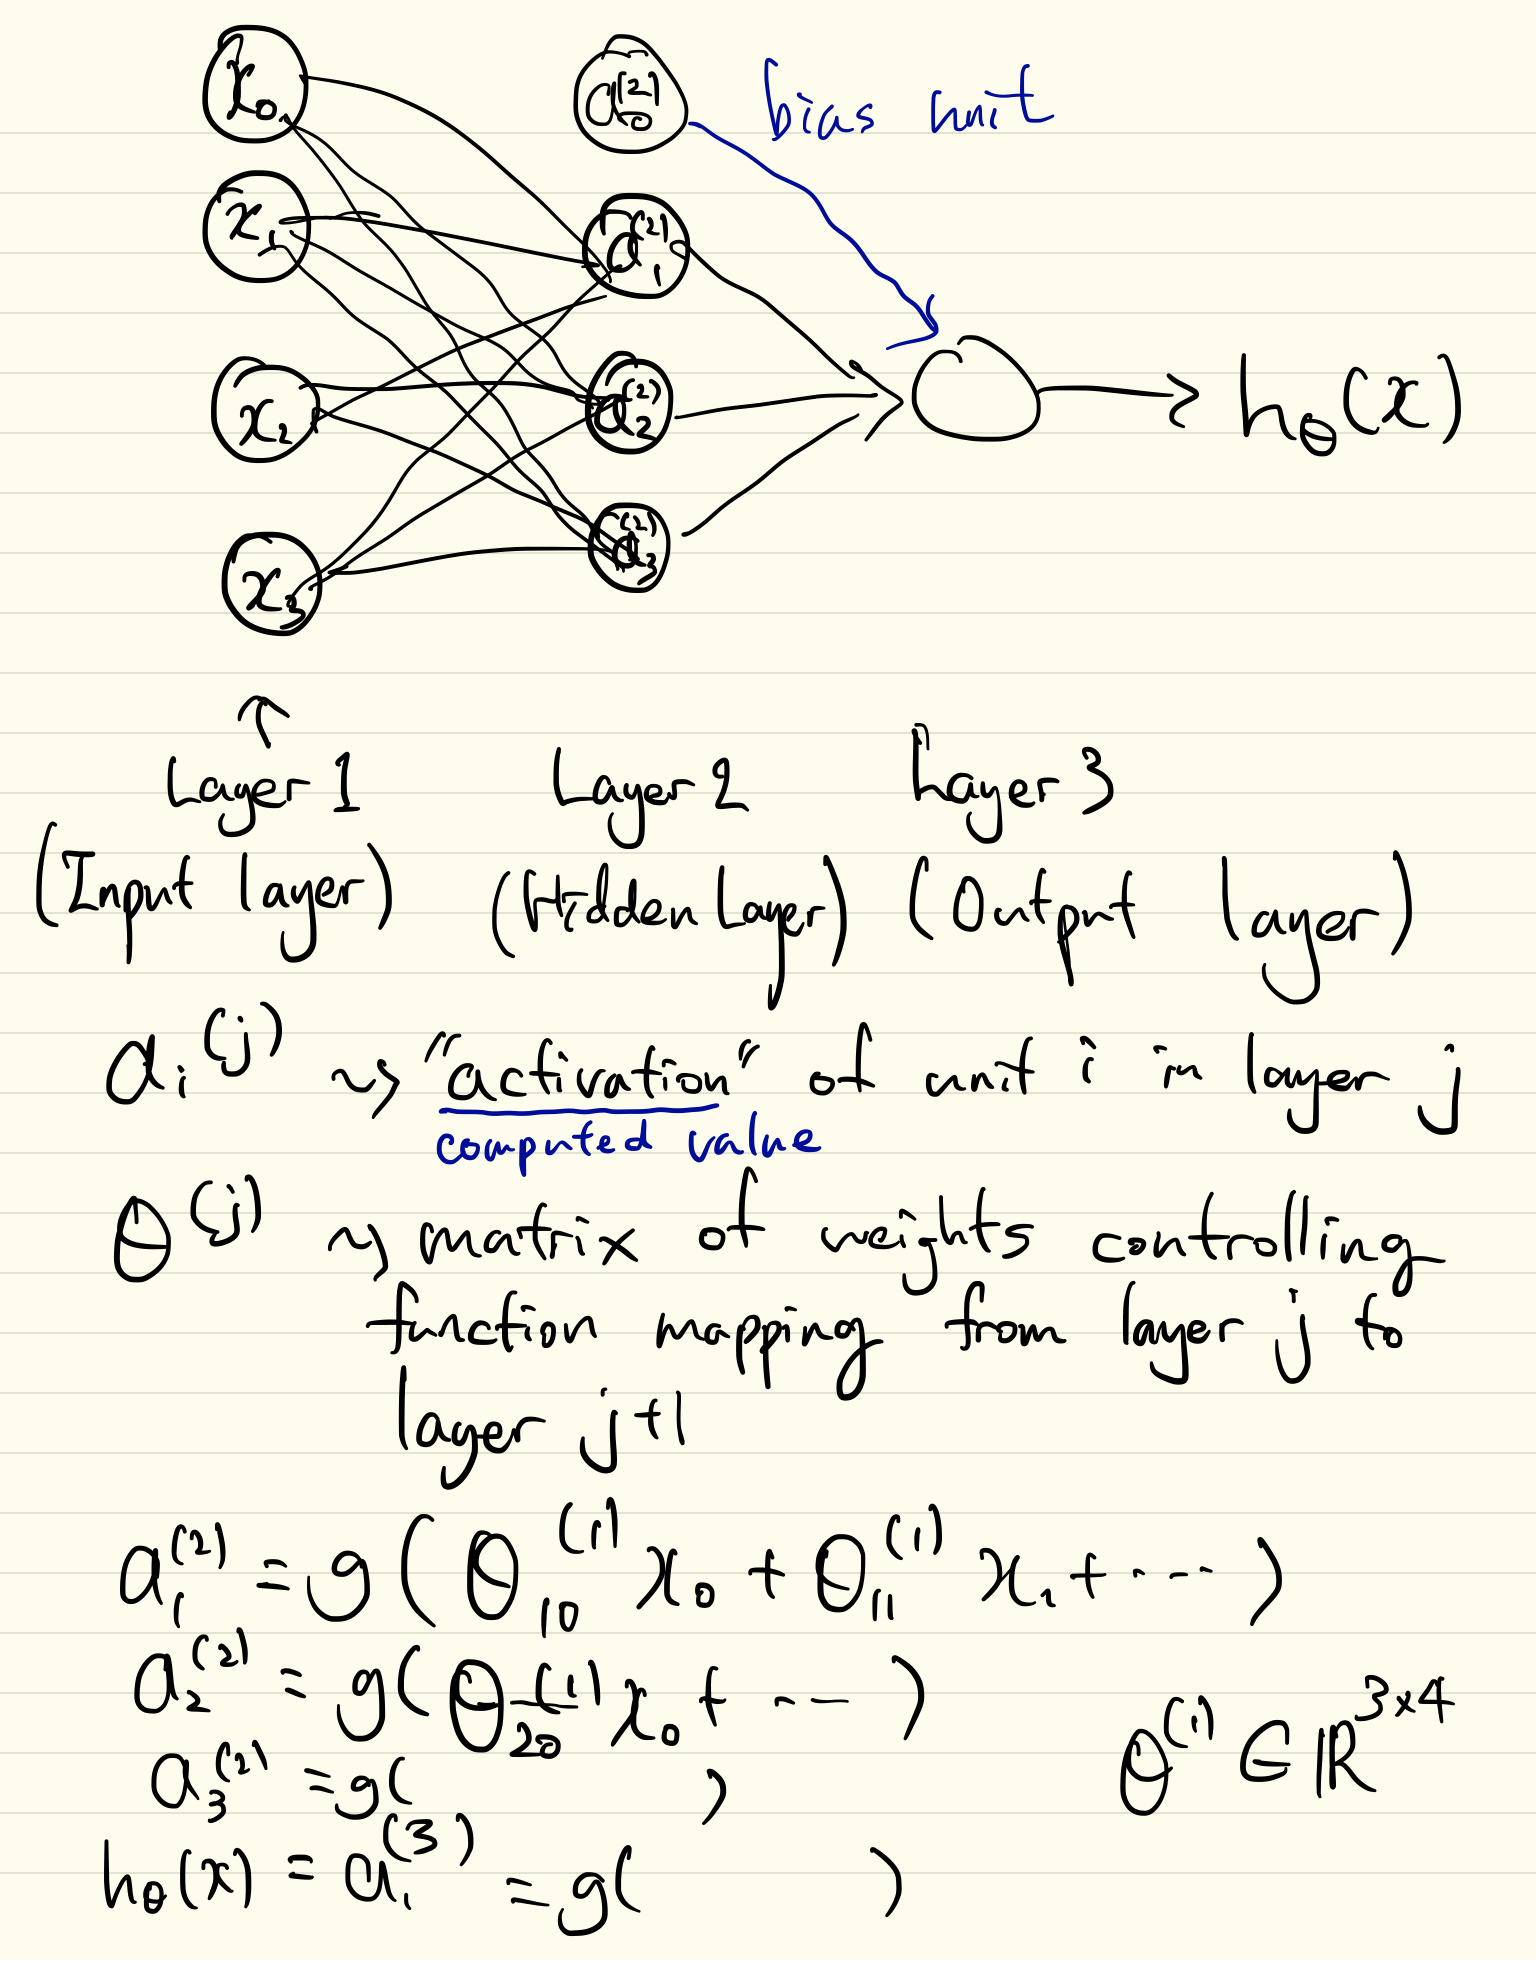 x₀ a₀⁽²⁾ bias unit
x₁ a₁⁽²⁾
x₂ a₂⁽²⁾ h_θ(x)
x₃ a₃⁽²⁾
↑
Layer 1 Layer 2 Layer 3
(Input layer) (Hidden Layer) (Output layer)
aᵢ⁽ʲ⁾ ⇝ "activation" of unit i in layer j
computed value
θ⁽ʲ⁾ ⇝ matrix of weights controlling
function mapping from layer j to
layer j+1
a₁⁽²⁾ = g(θ₁₀⁽¹⁾x₀ + θ₁₁⁽¹⁾x₁ + ⋯)
a₂⁽²⁾ = g(θ₂₀⁽¹⁾x₀ + ⋯)
a₃⁽²⁾ = g( ) θ⁽¹⁾ ∈ ℝ³ˣ⁴
h_θ(x) = a₁⁽³⁾ = g( )